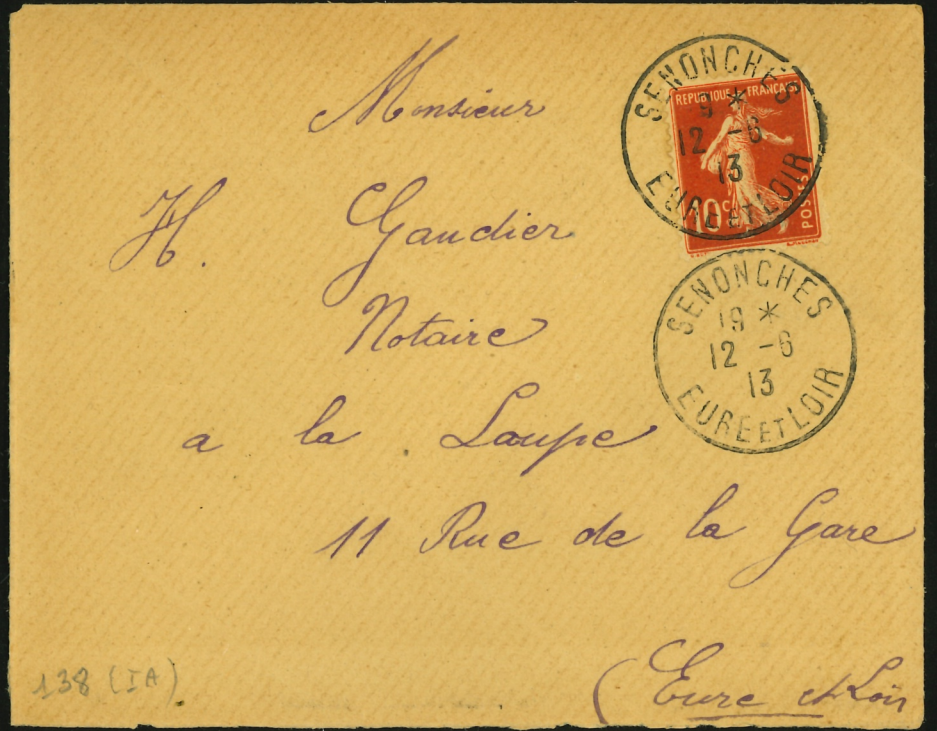 Monsieur
H. Gaudier
Notaire
a la Loupe
11 Rue de la Gare
(Eure et Loir
138 (IA)
REPUBLIQUE FRANÇAISE
10c
POSTES
SENONCHES
9 *
12 -6
13
EURE ET LOIR
SENONCHES
19 *
12 -6
13
EURE ET LOIR